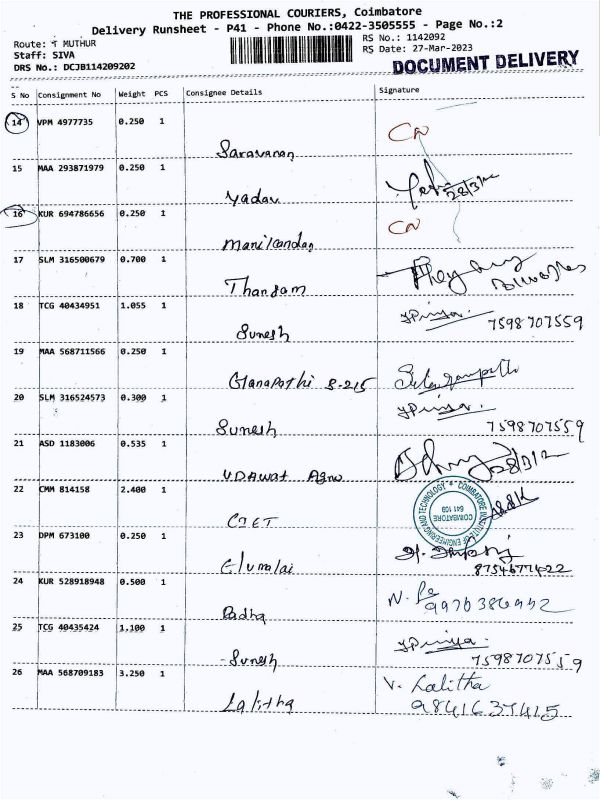 THE PROFESSIONAL COURIERS, Coimbatore
Delivery Runsheet - P41 - Phone No.:0422-3505555 - Page No.:2
Route: T MUTHUR
RS No.: 1142092
Staff: SIVA
RS Date: 27-Mar-2023
DRS No.: DCJB114209202
DOCUMENT DELIVERY
S No Consignment No Weight PCS Consignee Details Signature
14 VPM 4977735 0.250 1
Saravanan
15 MAA 293871979 0.250 1
Yadav
16 KUR 694786656 0.250 1
Manikandan
17 SLM 316500679 0.700 1
Thangam
18 TCG 40434951 1.055 1
Suresh 7598707559
19 MAA 568711566 0.250 1
Ganapathi S-215
20 SLM 316524573 0.300 1
Suresh 7598707559
21 ASD 1183006 0.535 1
Udawat Agro
22 CMM 814158 2.400 1
CIET
COIMBATORE INSTITUTE OF ENGINEERING AND TECHNOLOGY
COIMBATORE
641 109
23 DPM 673100 0.250 1
Elumalai
24 KUR 528918948 0.500 1
Radha
25 TCG 40435424 1.100 1
Suresh 7598707559
26 MAA 568709183 3.250 1
V. Lalitha
Lalitha 9841637415